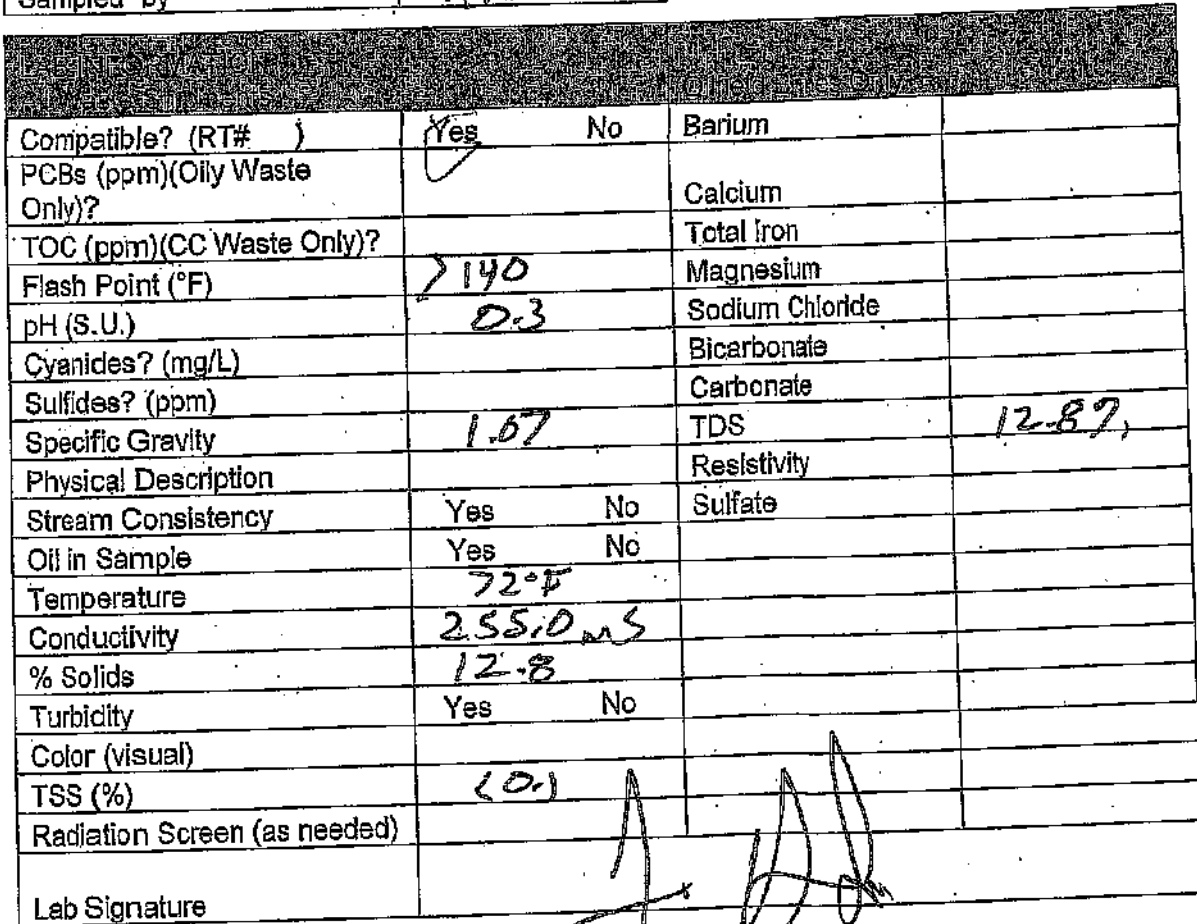 Sampled by
LAB INFORMATION
Compatible? (RT# ) Yes No Barium
PCBs (ppm)(Oily Waste
Only)? Calcium
TOC (ppm)(CC Waste Only)? Total Iron
Flash Point (°F) >140 Magnesium
pH (S.U.) 0.3 Sodium Chloride
Cyanides? (mg/L) Bicarbonate
Sulfides? (ppm) Carbonate
Specific Gravity 1.07 TDS 12.8%
Physical Description Resistivity
Stream Consistency Yes No Sulfate
Oil in Sample Yes No
Temperature 72°F
Conductivity 255.0 mS
% Solids 12.8
Turbidity Yes No
Color (visual)
TSS (%) <0.1
Radiation Screen (as needed)
Lab Signature